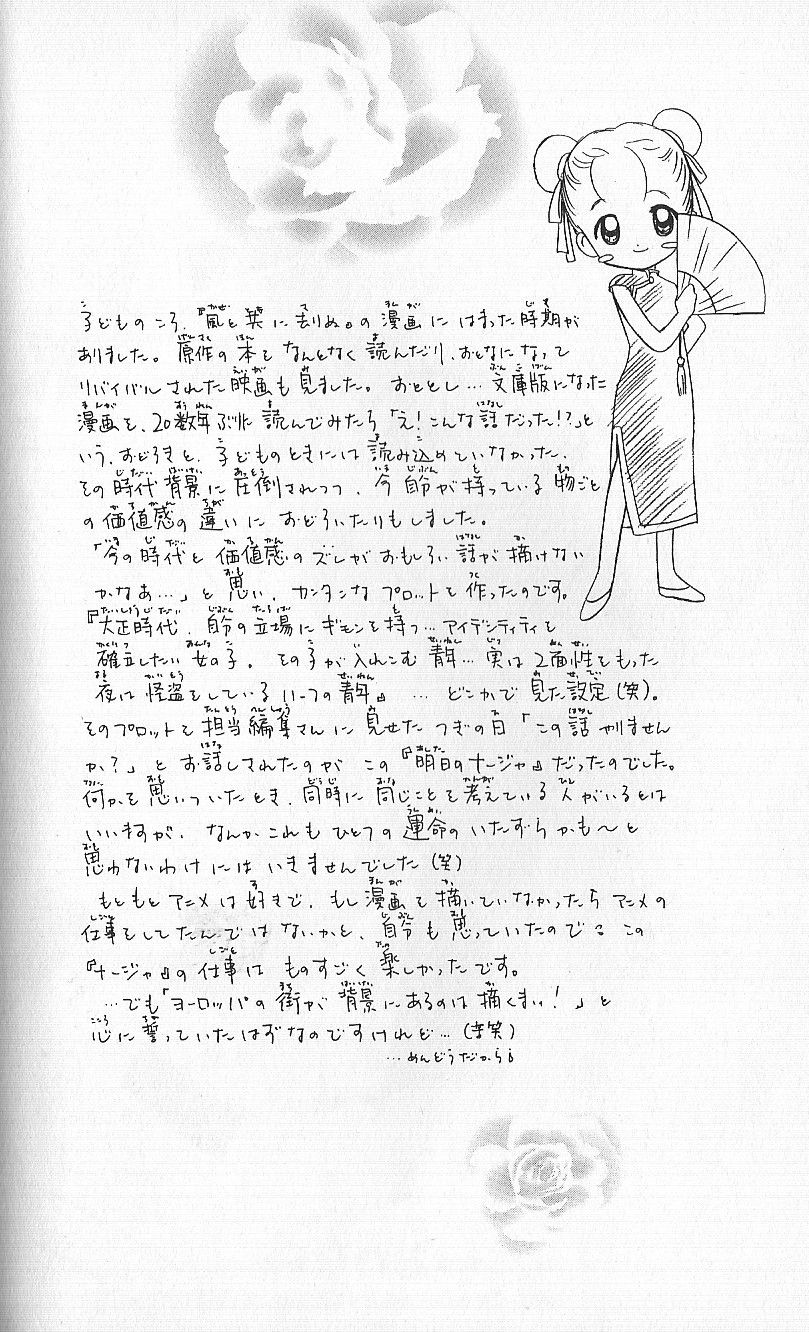 子どものころ、『風と共に去りぬ』の漫画にはまった時期が
ありました。原作の本をなんとなく読んだり、おとなになって
リバイバルされた映画も見ました。おととし…文庫版になった
漫画を、20数年ぶりに読んでみたら「え！こんな話だった!?」と
いう、おどろきと、子どものときには読み込めていなかった、
その時代背景に圧倒されつつ、今自分が持っている物ごと
の価値感の違いにおどろいたりもしました。
「今の時代と価値感のズレがおもしろい話が描けない
かなあ…」と思い、カンタンなプロットを作ったのです。
『大正時代、自分の立場にギモンを持つ…アイデンティティを
確立したい女の子。その子が入れこむ青年…実は2面性をもった
夜は怪盗をしている11〜つの青年』…どこかで見た設定(笑)。
そのプロットを担当編集さんに見せたつぎの日「この話やりません
か？」とお話しされたのがこの『明日のナージャ』だったのでした。
何かを思いついたとき、同時に同じことを考えている人がいるとは
いいますが、なんかこれもひとつの運命のいたずらかも〜と
思わないわけにはいきませんでした(笑)
もともとアニメは好きで、もし漫画を描いていなかったらアニメの
仕事をしてたんではないかと、自分も思っていたのでこの
『ナージャ』の仕事はものすごく楽しかったです。
…でも「ヨーロッパの街が背景にあるのは描くまい！」と
心に誓っていたはずなのですけれど…(苦笑)
…めんどうだから